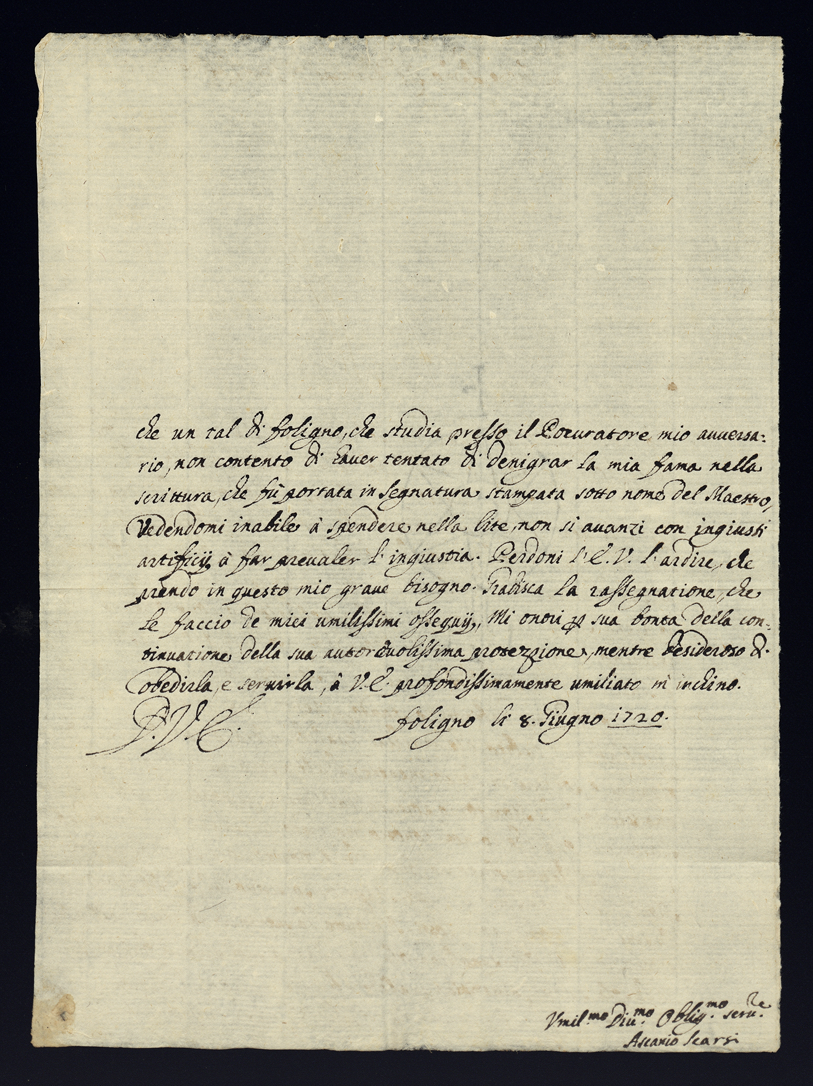 che un tal di foligno, che studia presso il Procuratore mio auuersa:
rio, non contento di hauer tentato di denigrar la mia fama nella
scrittura, che fù portata in Segnatura stampata sotto nome del Maestro,
Vedendomi inabile à spendere nella lite, non si auanzi con ingiusti
artificij à far preualer l'ingiustia. Perdoni l'E.V. l'ardire, che
prendo in questo mio graue bisogno. Gradisca la rassegnatione, che
le faccio de miei umilissimi ossequij, Mi onori p sua bontà della con:
tinuatione della sua autoreuolissima protezione, mentre desideroso di
obedirla, e seruirla, à V.E. profondissimamente umiliato m'inchino.
D.V.E. foligno li 8. Giugno 1720.
Vmil.mo Diu.mo Oblig.mo seru.re
Ascanio Scarsi